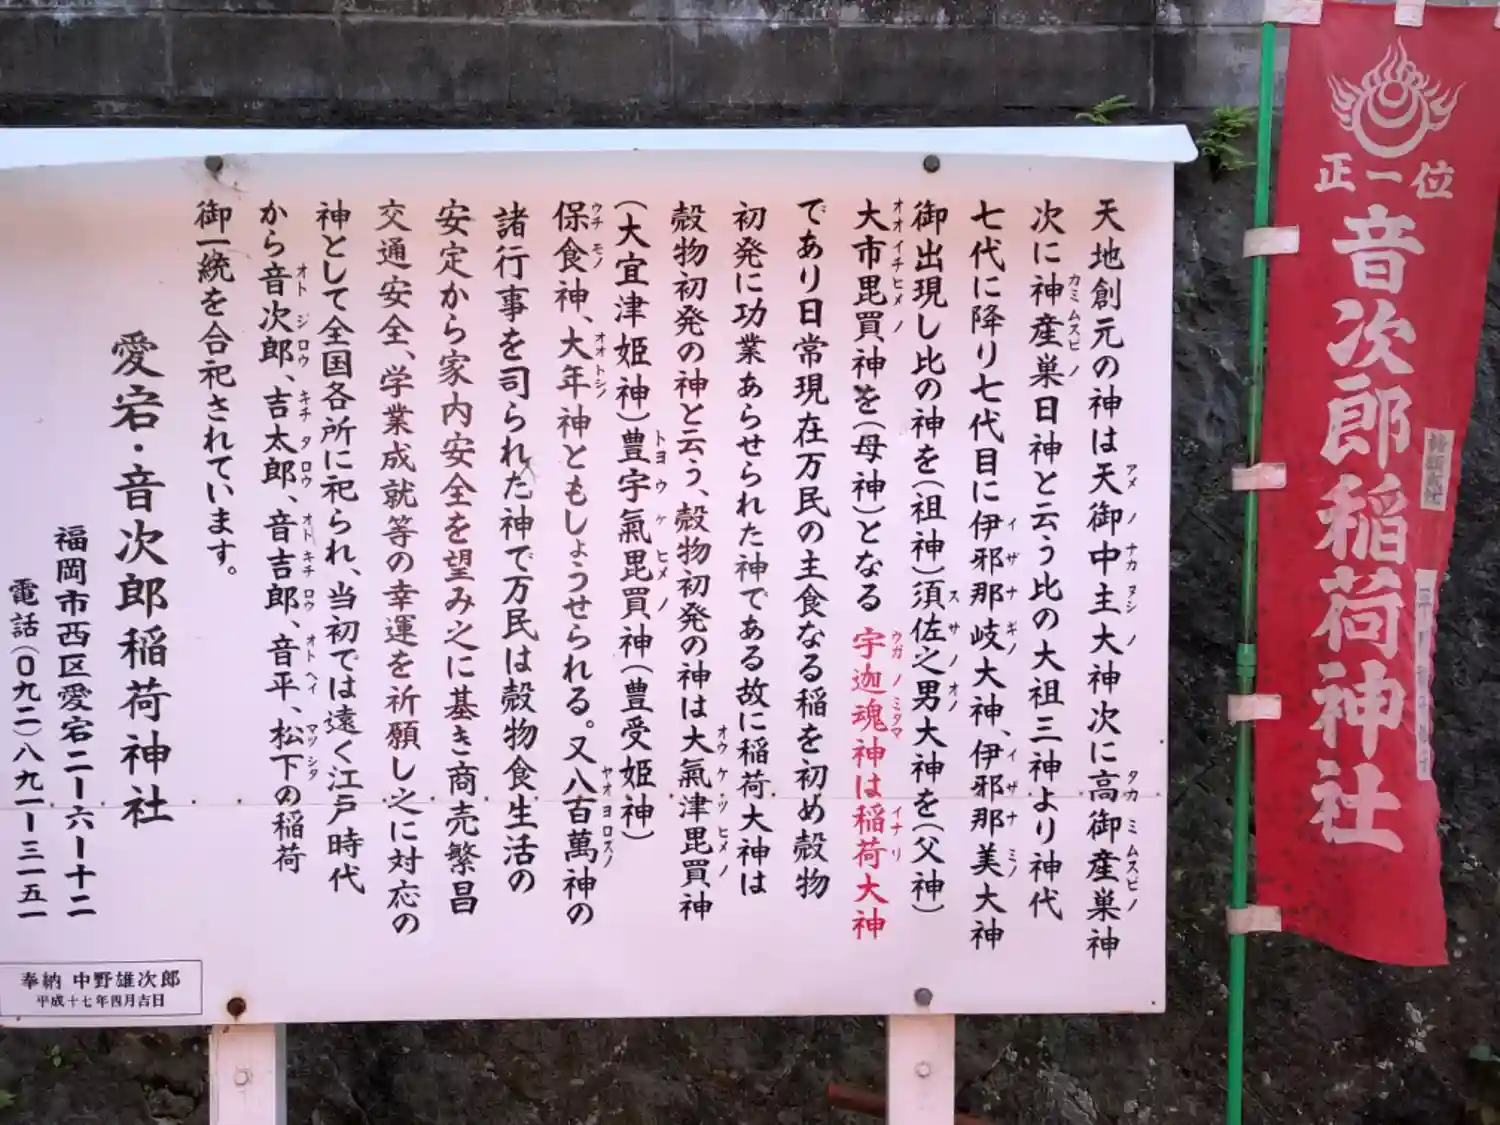 天地創元の神は天御中主大神次に高御産巣神
次に神産巣日神と云う比の大祖三神より神代
七代に降り七代目に伊邪那岐大神、伊邪那美大神
御出現し比の神を(祖神)須佐之男大神を(父神)
大市毘買神を(母神)となる 宇迦魂神は稲荷大神
であり日常現在万民の主食なる稲を初め殻物
初発に功業あらせられた神である故に稲荷大神は
殻物初発の神と云う、殻物初発の神は大氣津毘買神
(大宜津姫神)豊宇氣毘買神(豊受姫神)
保食神、大年神ともしょうせられる。又八百萬神の
諸行事を司られた神で万民は殻物食生活の
安定から家内安全を望み之に基き商売繁昌
交通安全、学業成就等の幸運を祈願し之に対応の
神として全国各所に祀られ、当初では遠く江戸時代
から音次郎、吉太郎、音吉郎、音平、松下の稲荷
御一統を合祀されています。
愛宕・音次郎稲荷神社
福岡市西区愛宕二ー六ー十二
電話(〇九二)八九一ー三一五一
奉納 中野雄次郎
平成十七年四月吉日
正一位
音次郎稲荷神社